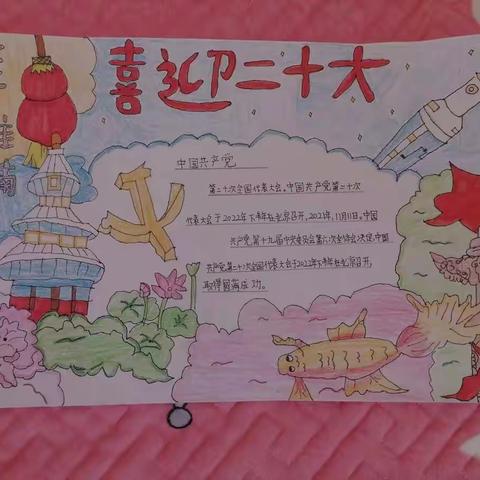 喜迎二十大
中国共产党
第二十次全国代表大会。中国共产党第二十次
代表大会于2022年下半年在北京召开,2021年,11月11日。中国
共产党第十九届中央委员会第六次全体会决定,中国
共产党第二十次全国代表大会于2022年下半年在北京召开,
取得圆满成功。